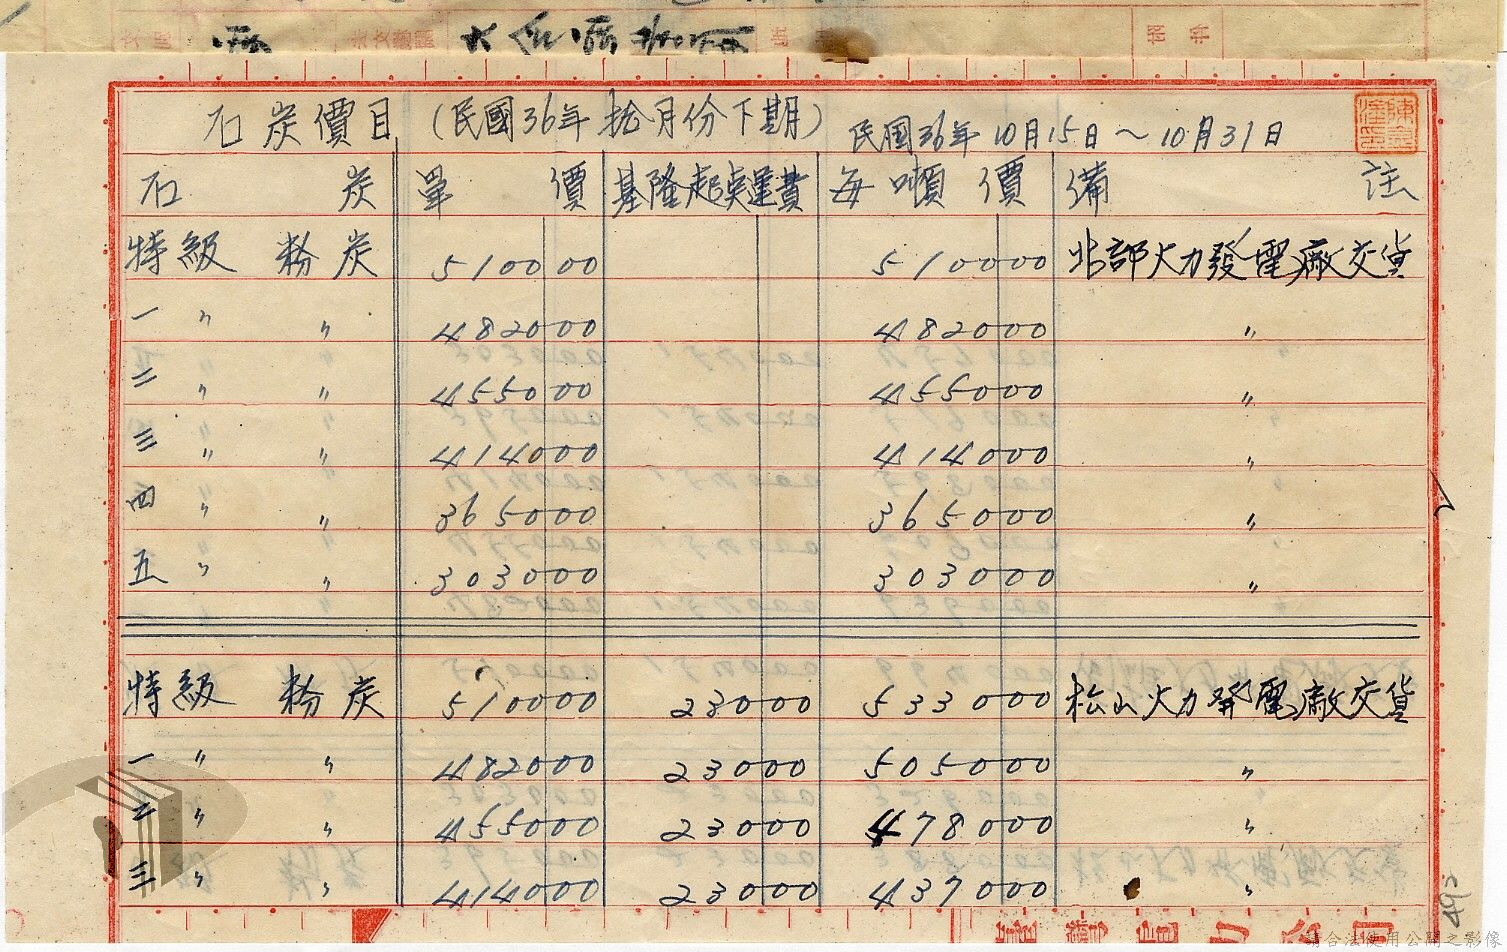 石炭價目(民國36年拾月份下期) 民國36年10月15日～10月31日
石炭 單價 基隆起卸運費 每噸價 備註
特級 粉炭 510000 510000 北部火力發電廠交貨
一 〃 〃 482000 482000 〃
二 〃 〃 455000 455000 〃
三 〃 〃 414000 414000 〃
四 〃 〃 365000 365000 〃
五 〃 〃 303000 303000 〃
特級 粉炭 510000 23000 533000 松山火力發電廠交貨
一 〃 〃 482000 23000 505000 〃
二 〃 〃 455000 23000 478000 〃
三 〃 〃 414000 23000 437000 〃
請合法使用公開之影像